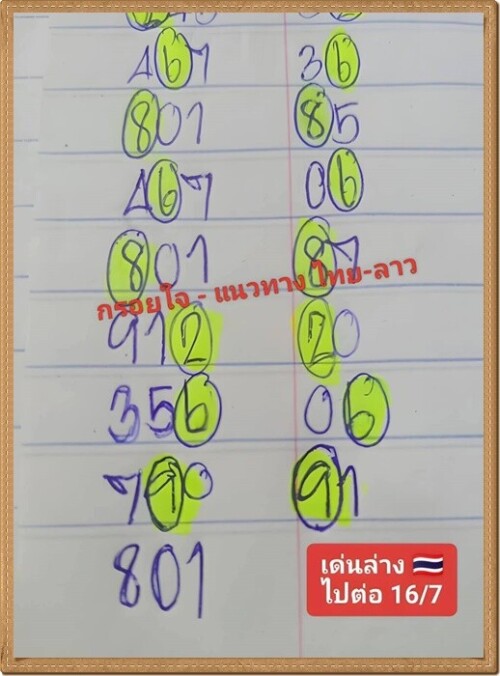 467 36
801 85
467 06
801 87
กรอยใจ - แนวทาง ไทย-ลาว
912 20
356 06
790 91
801
เด่นล่าง
ไปต่อ 16/7